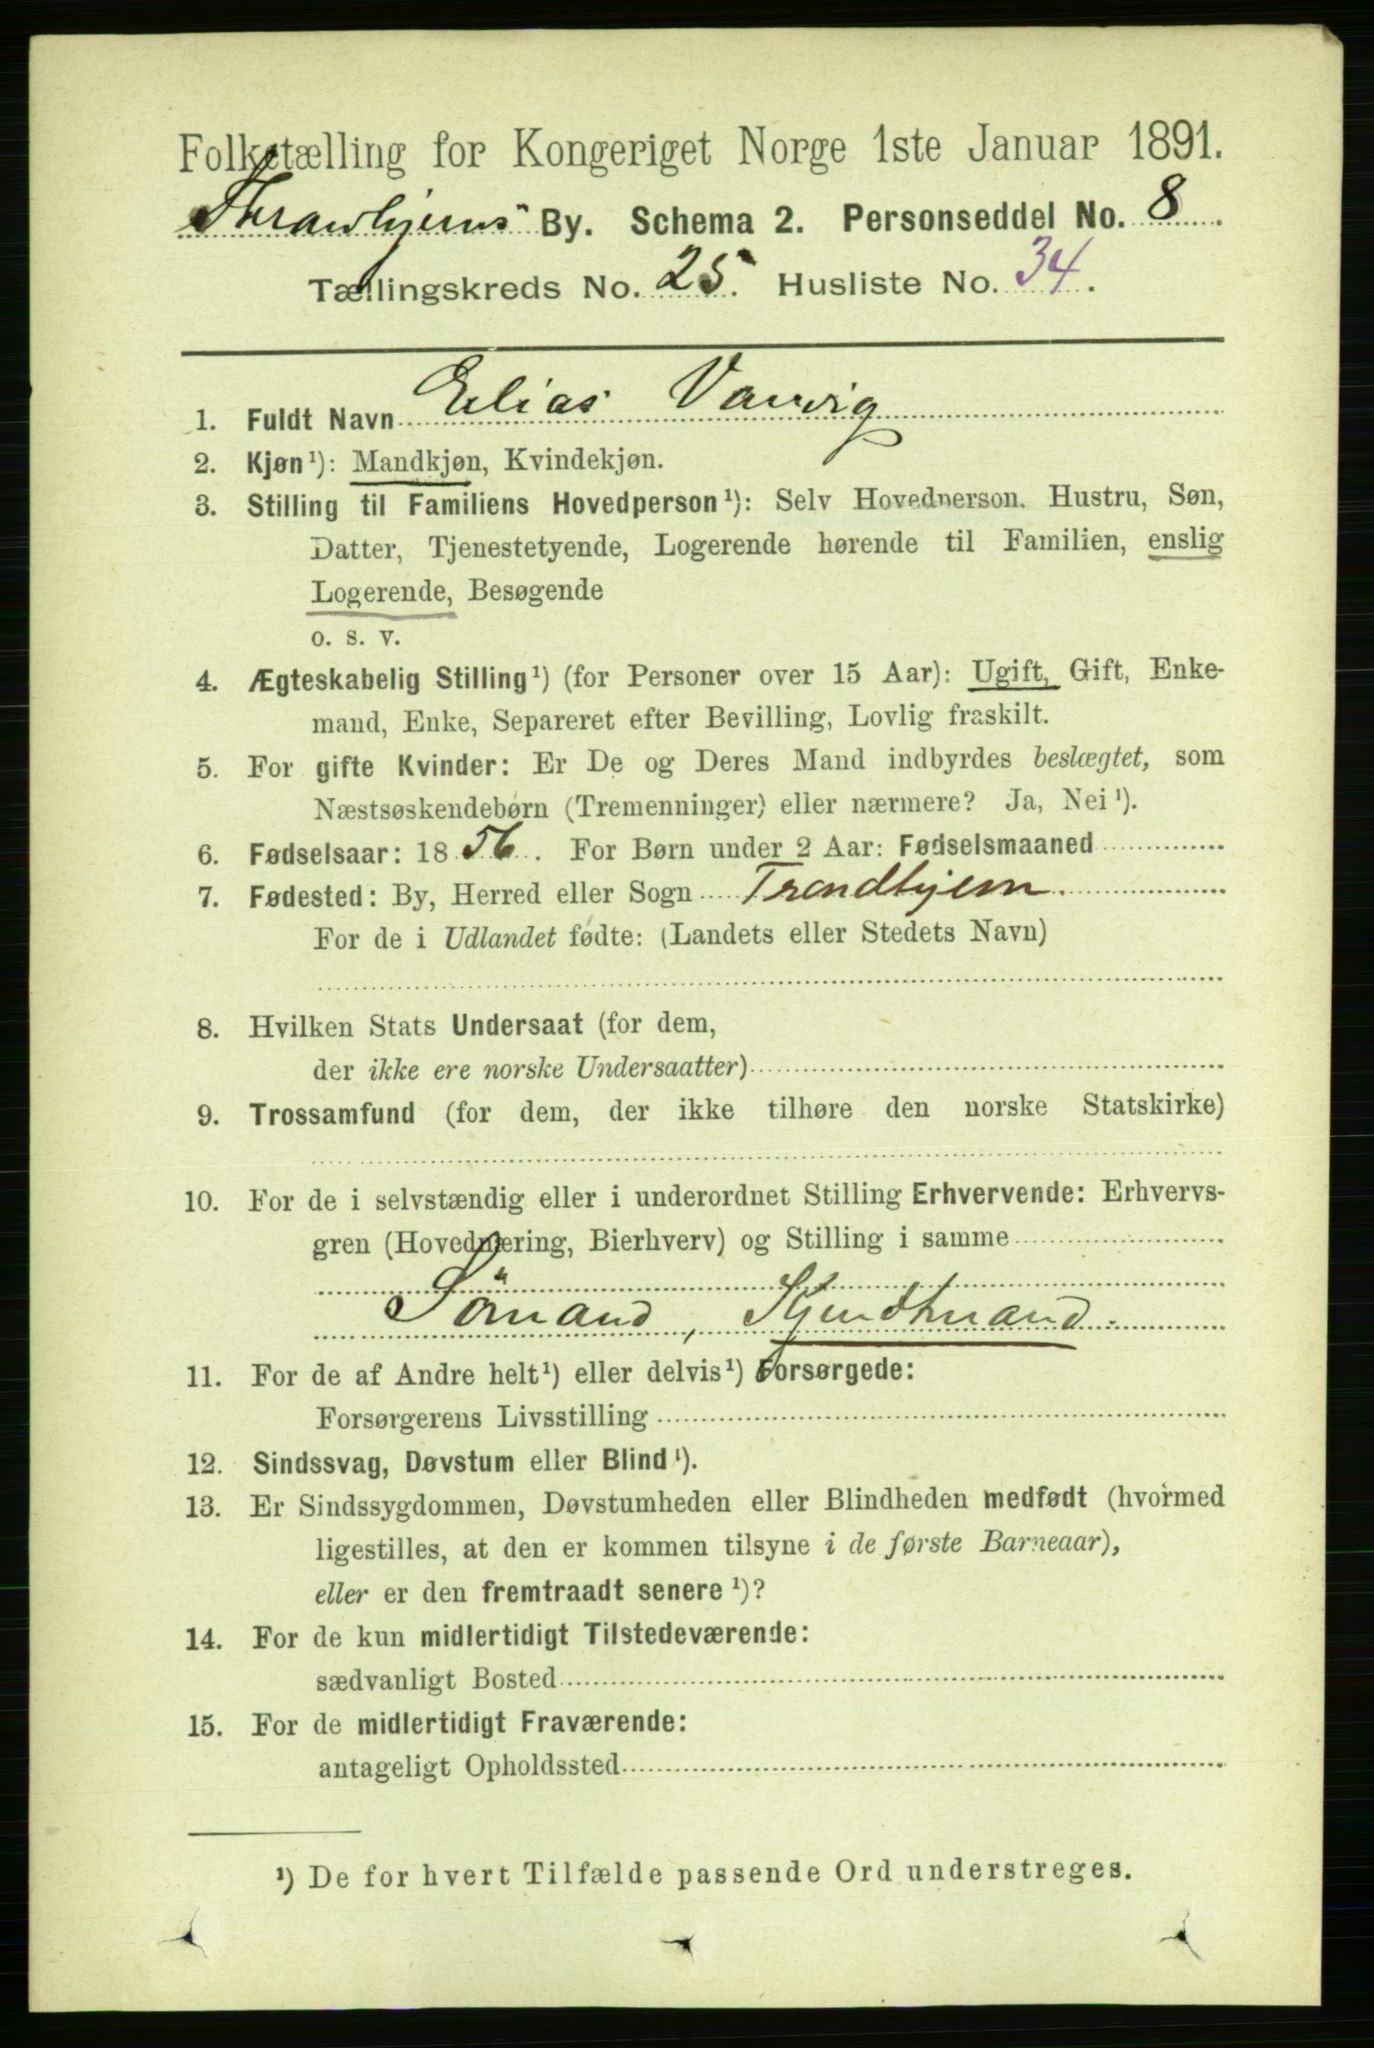 Folketælling for Kongeriget Norge 1ste Januar 1891.
Thrandhjems By. Schema 2. Personseddel No. 8.
Tællingskreds No. 25. Husliste No. 34.
1. Fuldt Navn Elias Vanvig
2. Kjøn¹): Mandkjøn, Kvindekjøn.
3. Stilling til Familiens Hovedperson¹): Selv Hovedperson, Hustru, Søn,
Datter, Tjenestetyende, Logerende hørende til Familien, enslig
Logerende, Besøgende
o. s. v.
4. Ægteskabelig Stilling¹) (for Personer over 15 Aar): Ugift, Gift, Enke-
mand, Enke, Separeret efter Bevilling, Lovlig fraskilt.
5. For gifte Kvinder: Er De og Deres Mand indbyrdes beslægtet, som
Næstsøskendebørn (Tremenninger) eller nærmere? Ja, Nei¹).
6. Fødselsaar: 1856. For Børn under 2 Aar: Fødselsmaaned
7. Fødested: By, Herred eller Sogn Trondhjem.
For de i Udlandet fødte: (Landets eller Stedets Navn)
8. Hvilken Stats Undersaat (for dem,
der ikke ere norske Undersaatter)
9. Trossamfund (for dem, der ikke tilhøre den norske Statskirke)
10. For de i selvstændig eller i underordnet Stilling Erhvervende: Erhvervs-
gren (Hovednæring, Bierhverv) og Stilling i samme
Sömand,
11. For de af Andre helt¹) eller delvis¹) Forsørgede:
Forsørgerens Livsstilling
12. Sindssvag, Døvstum eller Blind¹).
13. Er Sindssygdommen, Døvstumheden eller Blindheden medfødt (hvormed
ligestilles, at den er kommen tilsyne i de første Barneaar),
eller er den fremtraadt senere¹)?
14. For de kun midlertidigt Tilstedeværende:
sædvanligt Bosted
15. For de midlertidigt Fraværende:
antageligt Opholdssted
¹) De for hvert Tilfælde passende Ord understreges.